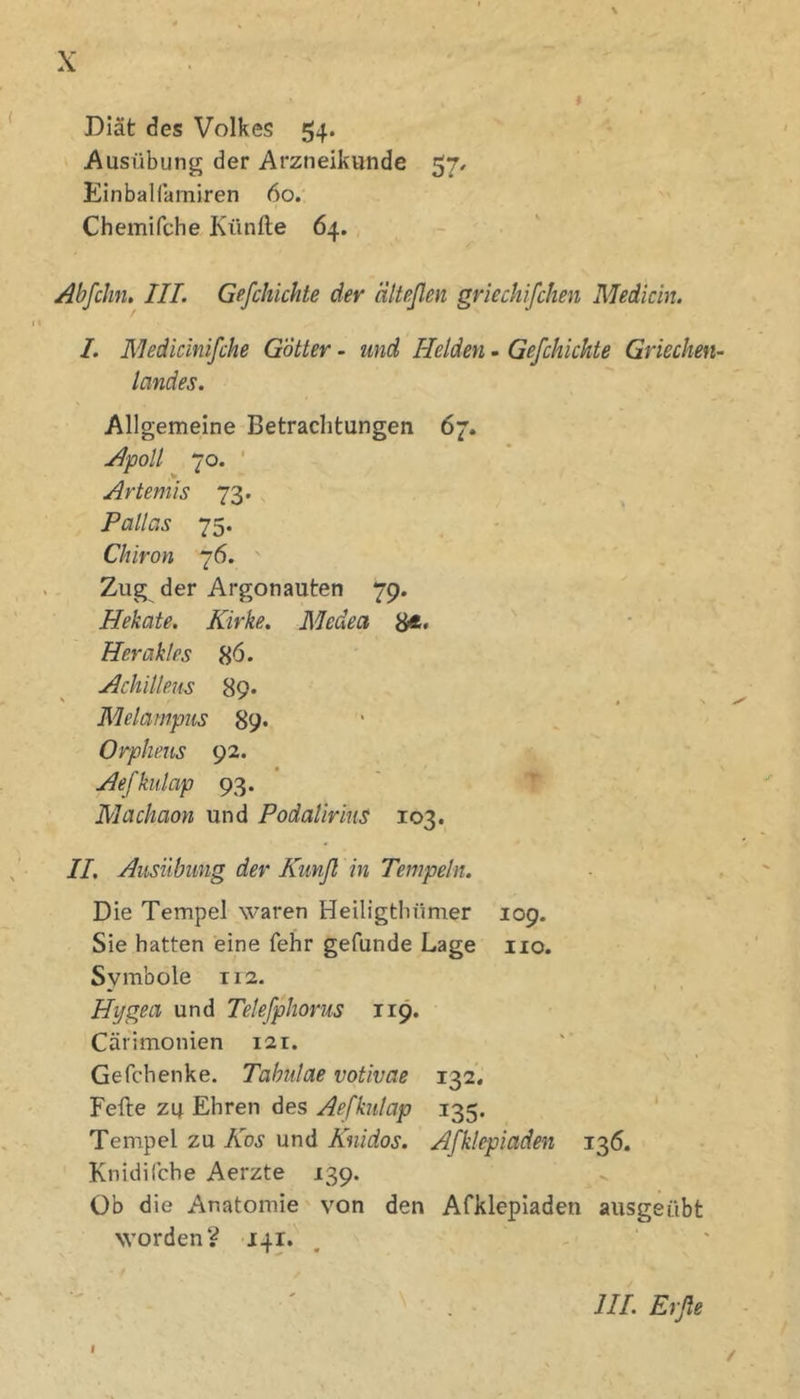 X
Diät des Volkes 54.
Ausübung der Arzneikunde 57.
Einbalſamiren 60.
Chemiſche Künſte 64.
Abſchn. III. Geſchichte der älteſten griechiſchen Medicin.
I. Mediciniſche Götter- und Helden-Geſchichte Griechen-
landes.
Allgemeine Betrachtungen 67.
Apoll 70.
Artemis 73.
Pallas 75.
Chiron 76.
Zug der Argonauten 79.
Hekate. Kirke. Medea
Herakles 86.
Achilleus 89.
Melampus 89.
Orpheus 92.
Aeſkulap 93.
Machaon und Podalirius 103.
II. Ausübung der Kunſt in Tempeln.
Die Tempel waren Heiligthümer 109.
Sie hatten eine ſehr geſunde Lage 110.
Symbole 112.
Hygea und Teleſphorus 119.
Cärimonien 121.
Geſchenke. Tabulae votivae 132.
Feſte zu Ehren des Aeſkulap 135.
Tempel zu Kos und Knidos. Aſklepiaden 136.
Knidiſche Aerzte 139.
Ob die Anatomie von den Aſklepiaden ausgeübt
worden? 141.
III. Erſte